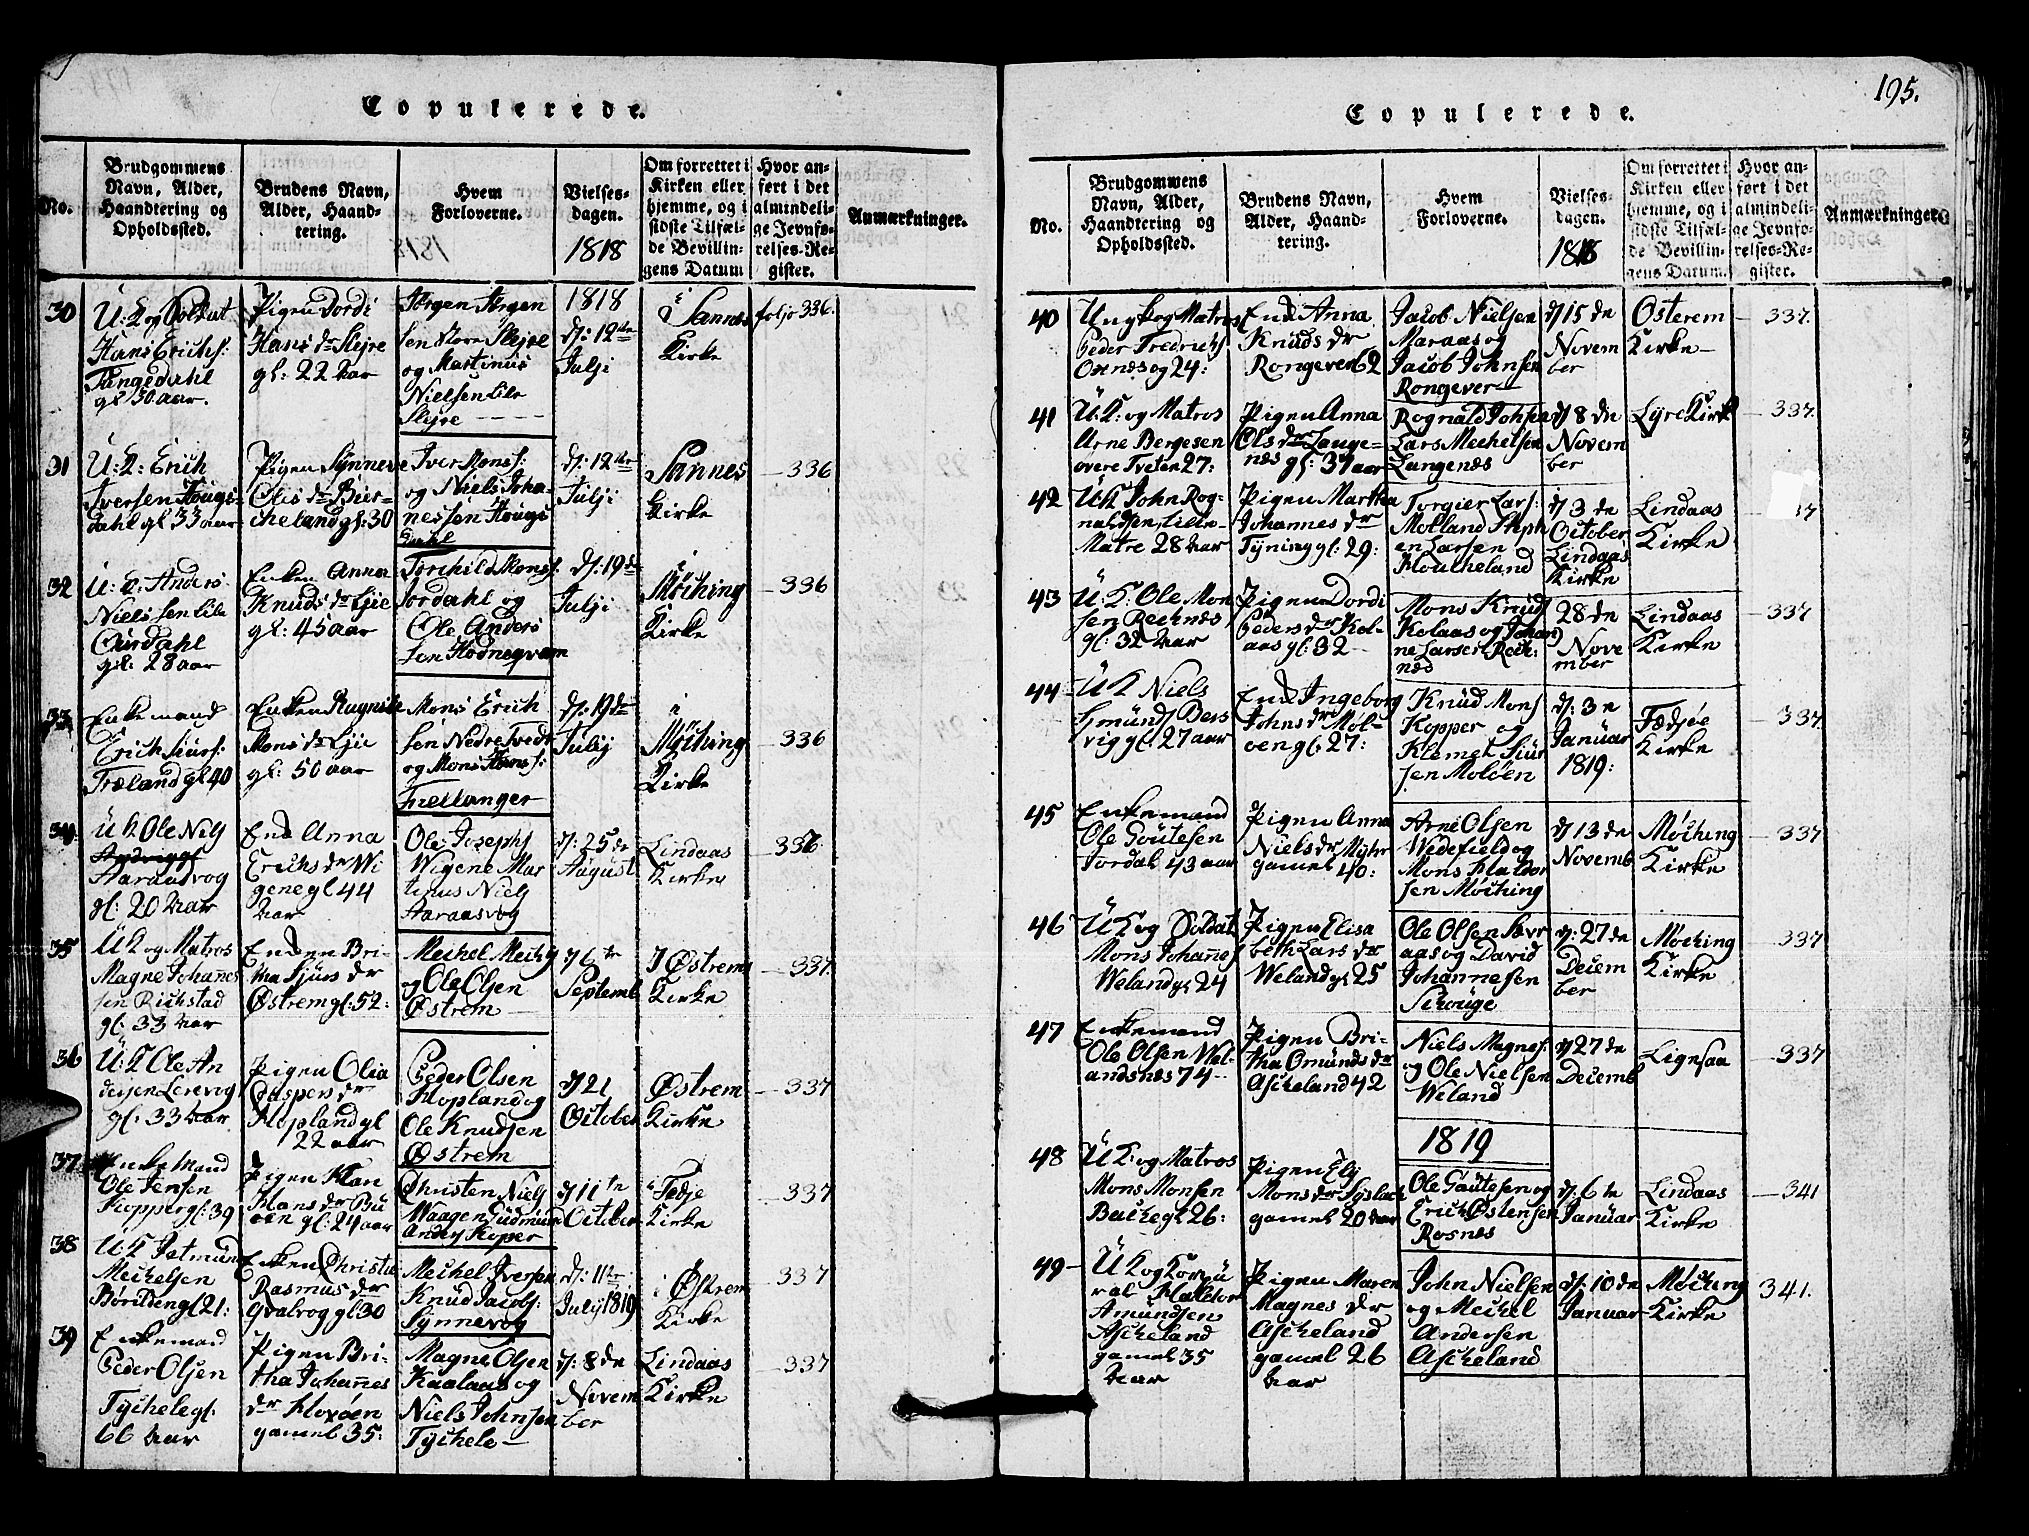 Copulerede.
No.
Brudgommens
Navn, Alder,
Haandtering og
Opholdssted.
Brudens Navn,
Alder, Haand-
tering.
Hvem
Forloverne.
Vielses-
dagen.
1818
Om forrettet i
Kirken eller
hjemme, og i
sidste Tilfæl-
de Bevillin-
gens Datum
Hvor an-
ført i det
almindeli-
ge Jevnfø-
relses-Re-
gister.
Anmærkninger.
30
U: K og Soldat
Hans Erichs:
Tangedahl
gl 30 aar.
Pigen Dordi
Hans dr Slejre
gl: 22 aar
Jørgen Jørgen
sen Store Slejre
og Martinus
Nielsen Lile
Slejre
1818
d: 12te
Julji
i Sannes
Kirke
folio 336.
31
U: K: Erich
Iversen Hougs
dahl gl 33 aar
Pigen Synneve
Olis dr Bir-
keland gl: 30
Iver Mons:
og Niels Joha-
nessen Hougs
dahl
d: 12te
Julji
Sannes
Kirke
336
32
U: K: Anders
Nielssen Lile
Oürdahl
gl: 28 aar
Enken Anna
Knuds dr Ljie
gl: 45 aar
Torchild Mons:
Jordahl og
Ole Anders
sen Hodnegvam
d: 19de
Julji
i
Møching
Kirke
336
33
Enkemand
Erich Siurs:
Træland gl 40
Enken Ragnild
Mons dr Ljie
gl: 50 aar
Mons Erich
sen Nedre Tvedt
og Mons Hans:
Frellanger
d: 19de
Julij
i
Møching
Kirke
336
34
U K Ole Nilsʃ
Aaraasvog
gl: 20 aar
Enk Anna
Erichs dr Wi
gene gl 44
aar
Ole Josephs
Wigene Mar
tinus Nielʃ
Aaraasvog
d: 25de
August
Lindaas
Kirke
336
35
U K og Matros
Magne Johanes
sen Richstad
gl: 33 aar
Enden Bri-
tha Sjurs dr
Østrem gl: 52:
Mechel Mechelʃ
og Ole Olsen
Østrem
d 6te
Septemb
I Østrem
Kirke
337.
36
U: K Ole An
dersen Lerevog
gl: 33 aar
Pigen Olia
Caspers dr
Hopland gl
22 aar
Peder Olsen
Hopland og
Ole Knudsen
Østrem
d 21
October
Østrem
Kirke
337
37
Enkemand
Ole Jensen
Kopper gl: 39
Pigen Kari
Hans dr Bü
øen gl: 24 aar
Christen Nielʃ
Waagen Gudmun
Anders Koper
d 11te
October
i Fædje
Kirke
337
38
U: K Jetmünd
Mechelsen
Børilden gl 21:
Enken Christie
Rasmus dr
Qvalvog gl 30
Mechel Iversen
Knüd Jacobs:
Synnevog
d: 11te
July 1819
i Østrem
Kirke
337
39
Enkemand
Peder Olsen
Tychele gl:
66 aar
Pigen Bri-
tha Johannes
dr Floxøen
gamel 35:
Magne Olsen
Kaalaas og
Niels Johnsen
Tychele
d: 8de
Novem
ber
Lindaas
Kirke
337
195.
Copulerede.
No.
Brudgommens
Navn, Alder,
Haandtering og
Opholdssted.
Brudens Navn,
Alder, Haand-
tering.
Hvem
Forloverne.
Vielses-
dagen.
1818
Om forrettet i
Kirken eller
hjemme, og i
sidste Tilfæl-
de Bevillin-
gens Datum.
Hvor an-
ført i det
almindeli-
ge Jevnfø-
relses-Re-
gister.
Anmærkninger.
40
Ungk og Matros
Peder Fredrichʃ
Oxnes og 24:
Enk Anna
Knuds dr
Rongever 62
Jacob Nielsen
Maraas og
Jacob Johnsen
Rongever
d 15de
Novem
ber
Osterem
Kirke
337.
41
U: K: og Matros
Arne Bergesen
øvere Tveten 27:
Pigen Anna
Ols dr Lange-
næs gl: 37 aar
Rognald Johʃen
Lars Mechelsen
Langenæs
d 8de
Novem
ber
Lyre Kirk
337.
42
U K John Rog-
naldsen Lille-
Matre 28 aar
Pigen Martha
Johannes dr
Tyning gl: 29:
Torgier Lars:
Molland Steph
en Larsen
Houcheland
d 3de
October
Lindaas
Kirke
Lindaas
Kirke
37
43
U: K: Ole Mon
sen Recknæs
gl: 32 aar
Pigen Dordi
Peders dr Kol-
aas gl: 32
Mons Knudʃ
Kolaas og Johan
ne Larsen Reck-
næs
28de
Nove
mber
Lindaas
Kirke
337
44
U K Niels
Gmündʃ Bers
vig gl: 27 aar
Enk Ingeborg
Johns dr Mol-
øen gl: 27:
Knüd Monsʃ
Kopper og
Klemet Sjür
sen Moløen
d: 3e
Januar
1819:
Fædjøe
Kirke
337.
45
Enkemand
Ole Goutesen
Tordal 43 aar
Pigen Anna
Niels dr Myhr
gamel 40:
Arne Olsen
Widefield og
Mons Haldor
sen Møching
d 13de
Novemb
Møching
Kirke
337.
46
U K og Soldat
Mons Johannesʃ
Weland gl 24
Pigen Elisa
beth Lars dr
Weland gl 25
Ole Olsen Sævr
aas og David
Johannesen
Schouge
d: 27de
Decem
ber
Møching
Kirke
337
47
Enkemand
Ole Olsen Wel-
andsnes 74
Pigen Bri-
tha Omünds dr
Ascheland 42
Niels Magnes:
og Ole Nielsen
Weland
d 27de
Decemb
Lignsaa
337
1819
48
U K: og Matros
Mons Monsen
Bache gl 26:
Pigen Elj
Mons dr Syslack
gamel 20 aar
Ole Goutesen og
Erich Østensen
Rosnes
d: 6te
Januar
Lindaas
Kirke
341
49
U K og Korpü
ral Haldor
Amündsen
Ascheland
gamel 35
aar
Pigen Maren
Magnes dr
Ascheland
gamel 26
aar
John Nielsen
og Mechel
Andersen
Ascheland
d: 10de
Januar
Møching
Kirke
341.